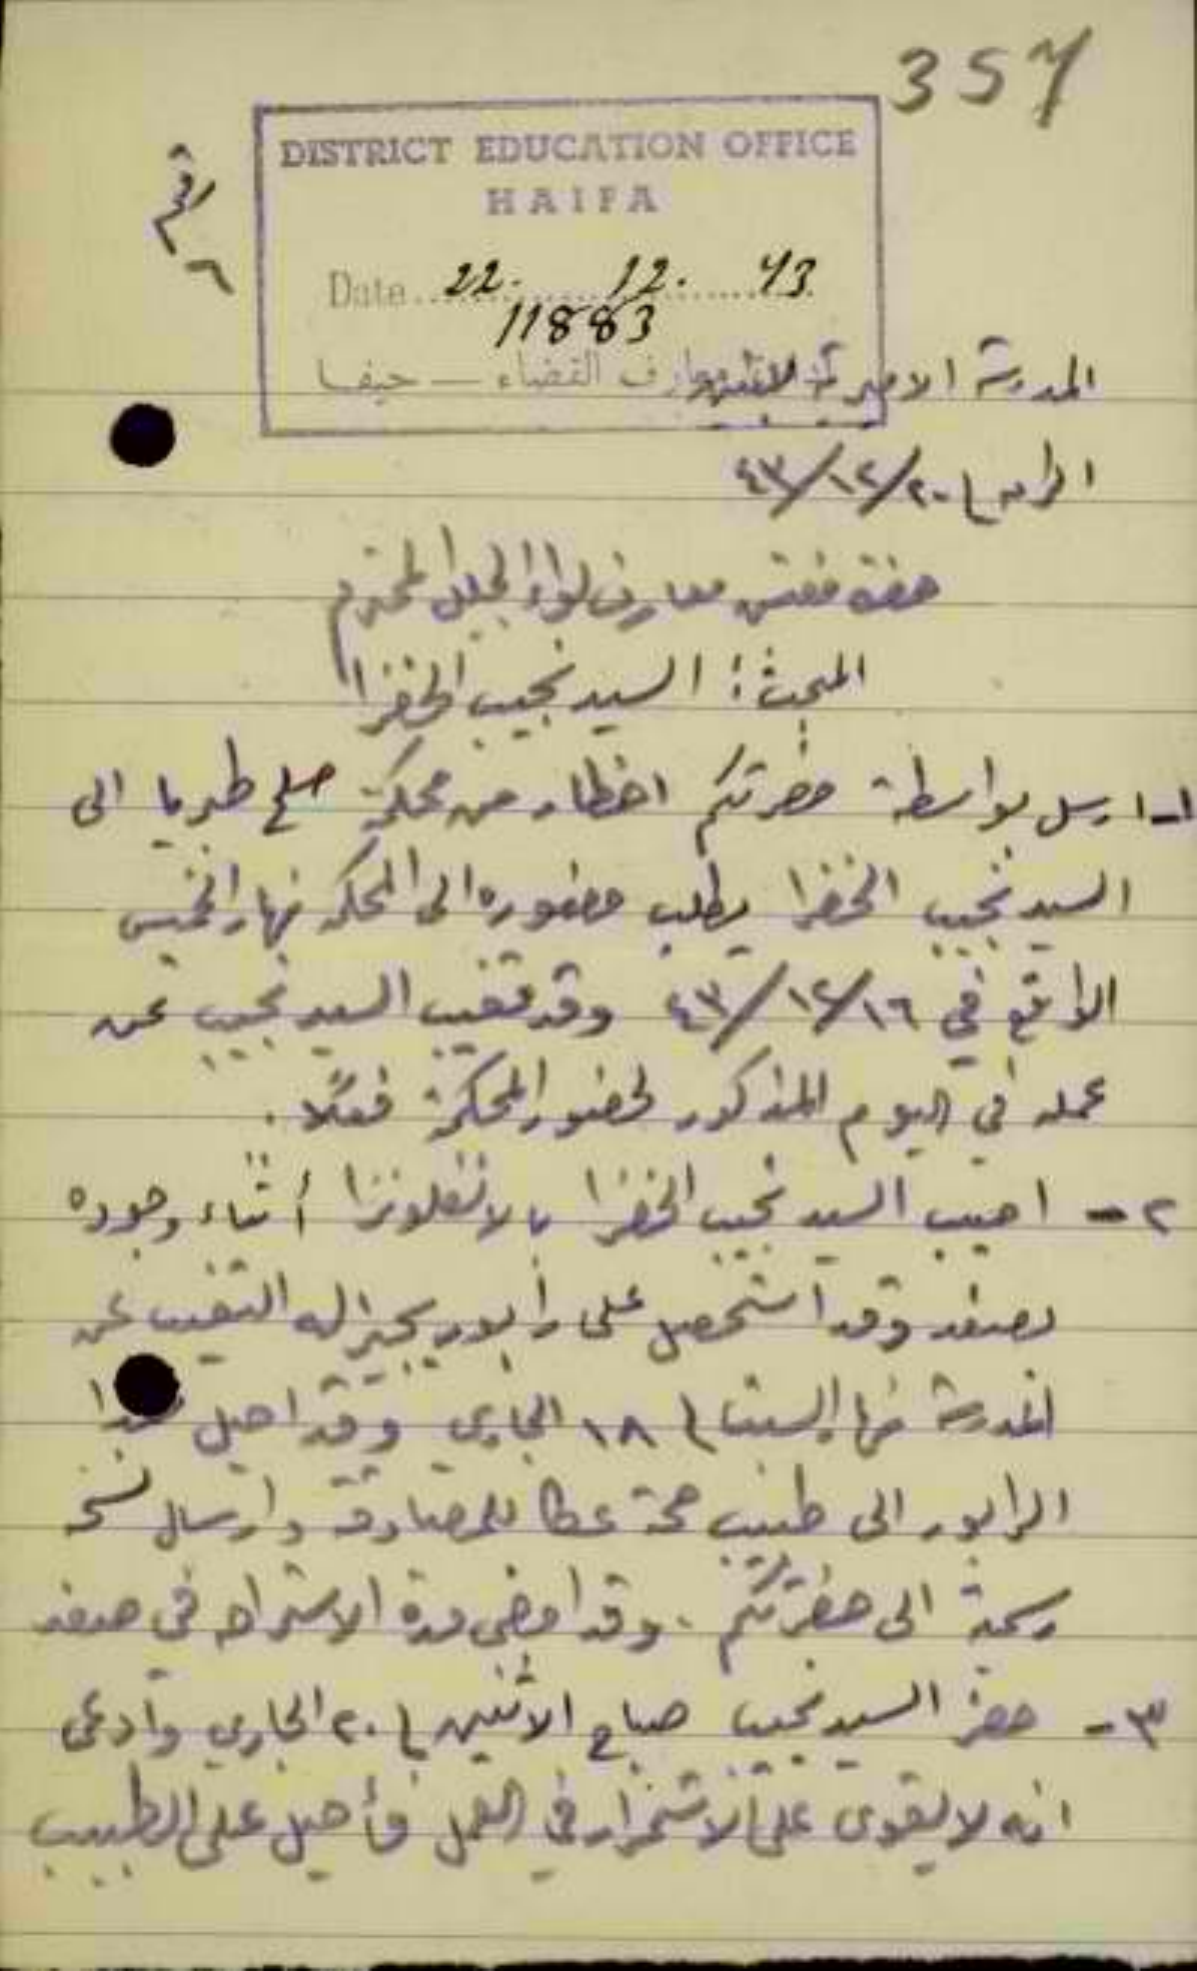 357
DISTRICT EDUCATION OFFICE
HAIFA
Date 22. 12. 43
11883
معارف القضاء — حيفا
المدرسة الاميرية للبنين
الرامه في ٢٠/١٢/٤٣
حضرة مفتش معارف لواء الجليل المحترم
المبحث: السيد نجيب الخضرا
١- ارسل بواسطة حضرتكم اخطار من محكمة صلح طبريا الى
السيد نجيب الخضرا يطلب حضوره الى المحكمة نهار الخميس
الواقع في ١٦/١٢/٤٣ وقد تغيب السيد نجيب عن
عمله في اليوم المذكور لحضور المحكمة فعلاً.
٢- اصيب السيد نجيب الخضرا بالانفلونزا أثناء وجوده
بصفد وقد استحصل على رابور يجيز له التغيب عن
المدرسة نهار السبت في ١٨ الجاري وقد احيل هذا
الرابور الى طبيب صحة عكا للمصادقة وارسال نسخة
رسمية الى حضرتكم. وقد امضى مدة الاستراحه في صفد
٣- حضر السيد نجيب صباح الاثنين في ٢٠ الجاري وادعى
انه لا يقوى على الاستمرار في العمل فأحيل على الطبيب